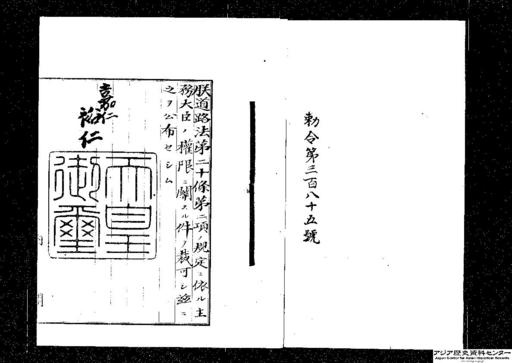 勅令第三百八十五號
朕道路法第二十條第二項ノ規定ニ依ル主
務大臣ノ權限ニ關スル件ヲ裁可シ茲ニ
之ヲ公布セシム
嘉仁
裕仁
天皇
御璽
アジア歴史資料センター
Japan Center for Asian Historical Records